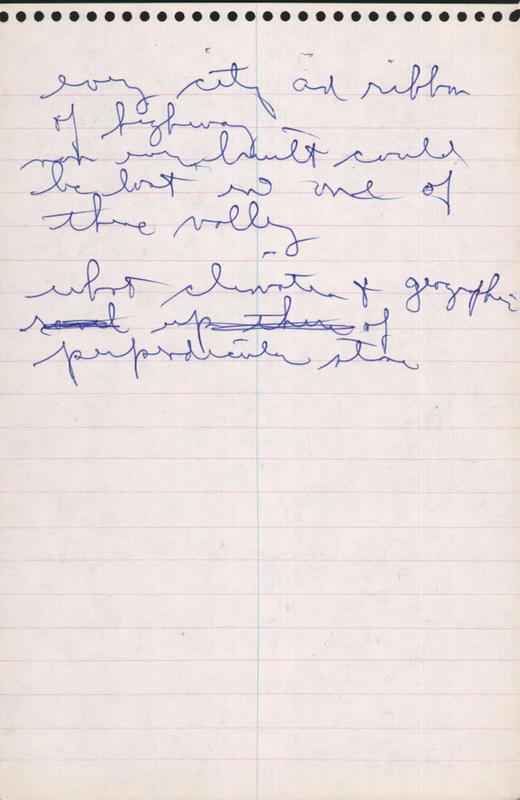 every city and ribbon
of highway
man ever built could
be lost in one of
these valleys
what climates & geographies
up of
perpendicular stone